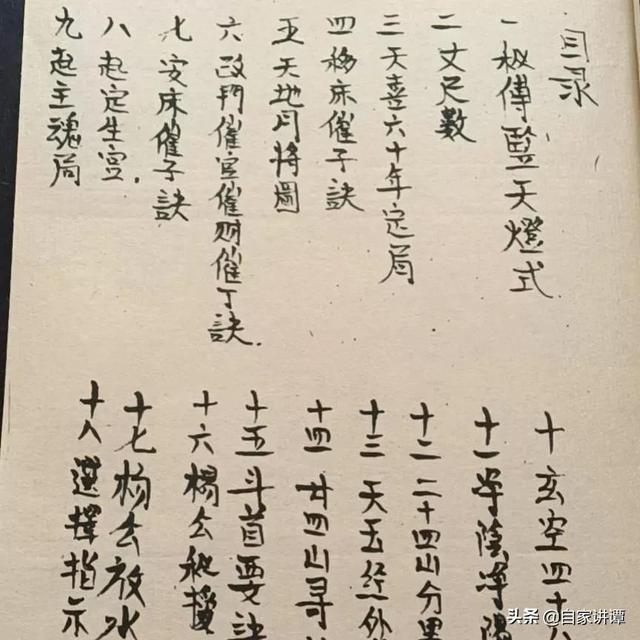 目录
一 秘傅竪天燈式
二 丈尺數
三 天喜六十年定局
四 移床催子訣
五 天地月將圖
六 改門催官催财催丁訣.
七 安床催子訣
八 起定生宫.
九 起主魂局
十 玄空四十
十一 净陰净陽
十二 二十四山分
十三 天玉经外
十四 廿四山寻
十五 斗首要訣
十六 楊公秘授
十七 杨公放水
十八 選擇指示
头条 @自家讲谭